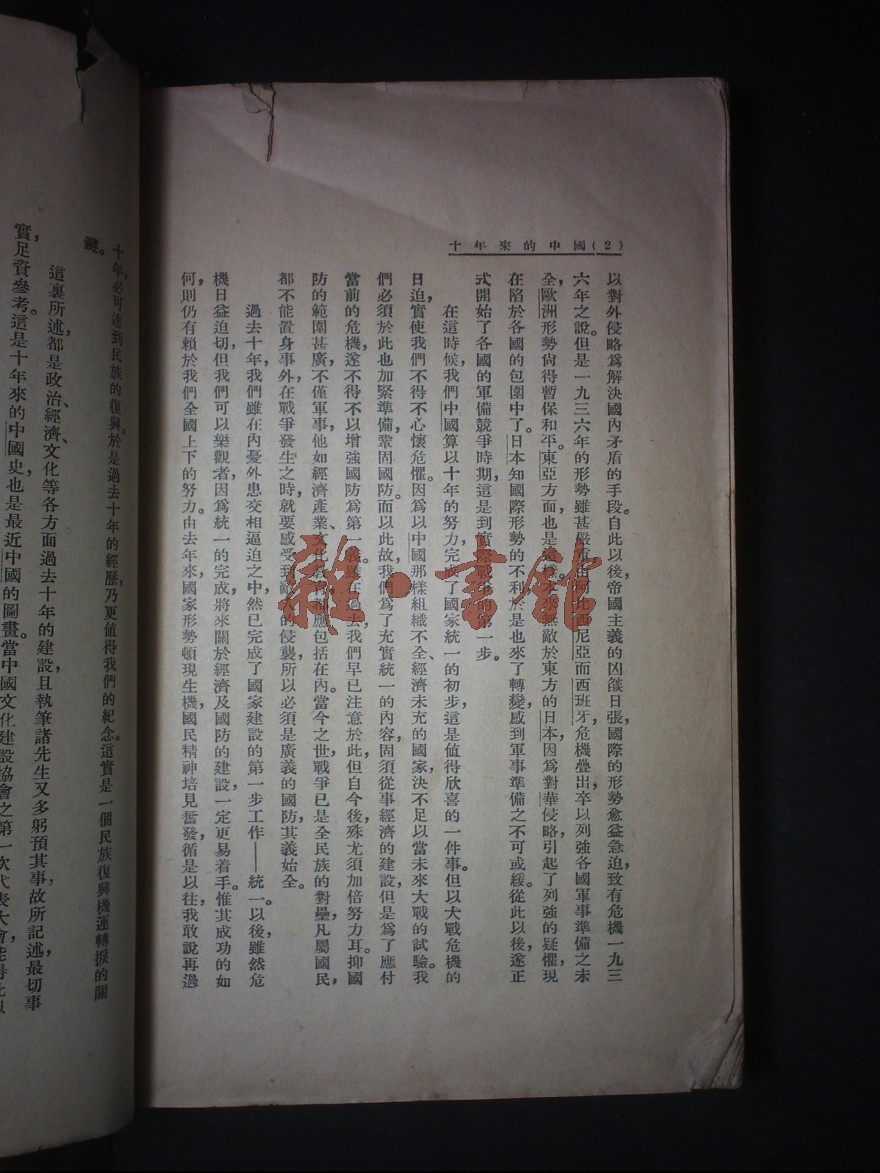 十年來的中國(2)
以對外侵略爲解決國內矛盾的手段。自此以後，帝國主義的凶燄日張，國際的形勢愈益急迫，致有危機一九三
六年之說。但是一九三六年的形勢雖甚嚴重，由阿比西尼亞而西班牙，危機疊出，卒以列強各國軍事準備之未
全，歐洲形勢尙得暫保和平。東亞方面，也是這樣，無敵於東方的日本，因爲對華侵略，引起了列強的疑懼，現
在陷於各國的包圍中了。日本知國際形勢的不利，於是也來了轉變，感到軍事準備之不可或緩。從此以後，遂正
式開始了各國的軍備競爭時期，這是到實際戰爭的第一步。
在這時候，我們中國算以十年的努力，完成了國家統一的初步，這是値得欣喜的一件事。但以大戰危機的
日迫，實使我們不得不心懷危懼。因爲以中國那樣組織不全、經濟未充的國家，決不足以當未來大戰的試驗。我
們必須於此也加緊準備，鞏固國防。而以此故，我們爲了充實統一的內容，固須從事經濟的建設，但是爲了應付
當前的危機，遂不得不以增強國防爲第一義。在過去，我們早已注意於此，但自今後，殊尤須加倍努力耳。抑國
防的範圍甚廣，不僅軍事，他如經濟產業、文化都應包括在內。當今之世，戰爭已是全民族的對壘，凡屬國民，
都不能置身事外，在戰爭發生之時，就要感受到敵人的侵襲，所以必須是廣義的國防，其義始全。
過去十年，我們雖在內憂外患交相逼迫之中，然已完成了國家建設的第一步工作——統一。以後，雖然危
機日益迫切，但我們可以樂觀者，因爲統一的完成，將來關於經濟及國防的建設，一定更易着手。惟其成功的如
何，則仍有賴於我們全國上下的努力。由去年來，國家形勢頓現生機，國民精神培見奮發，循是以往，我敢說再過
十年，必可達到民族的復興，於是過去十年的經歷，乃更値得我們的紀念。這實是一個民族復興機運轉捩的關
鍵。
這裏所述，都是政治、經濟、文化等各方面過去十年的建設，且執筆諸先生又多躬預其事，故所記述最切事
實，足資參考。這是十年來的中國史，也是最近中國的圖畫。當中國文化建設協會之第一次代表大會
雜·書館